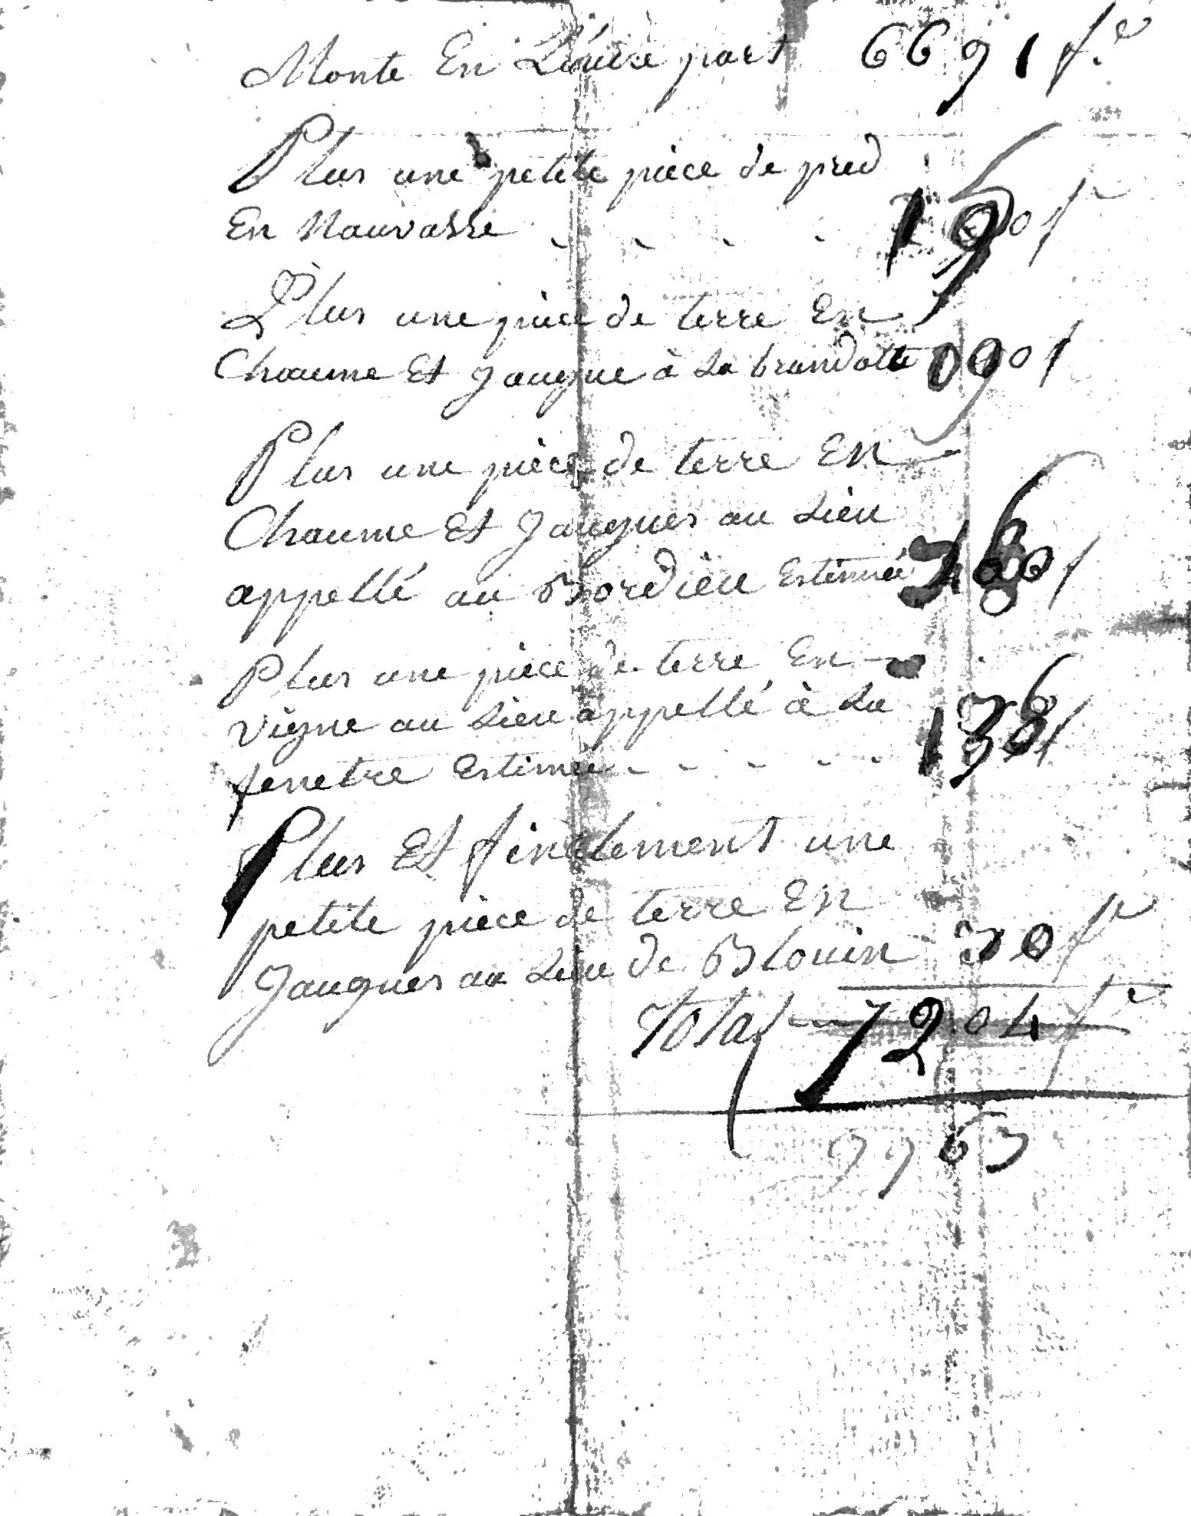 Monte En L'autre part 6691 f.
Plus une petite pièce de pred
En Mauvasse . . . .
Plus une pièce de terre En
Chaume Et Jaugue à La brandotte 090 f
Plus une pièce de terre En
Chaume Et Jaugues au Lieu
appellé au Bordieu Estimée
Plus une pièce de terre En
vigne au Lieu appellé à La
fenetre Estimée . . . . .
Plus Et finalement une
petite pièce de terre En
Jaugues au Lieu de Blouin 30 f
Total 7204 f